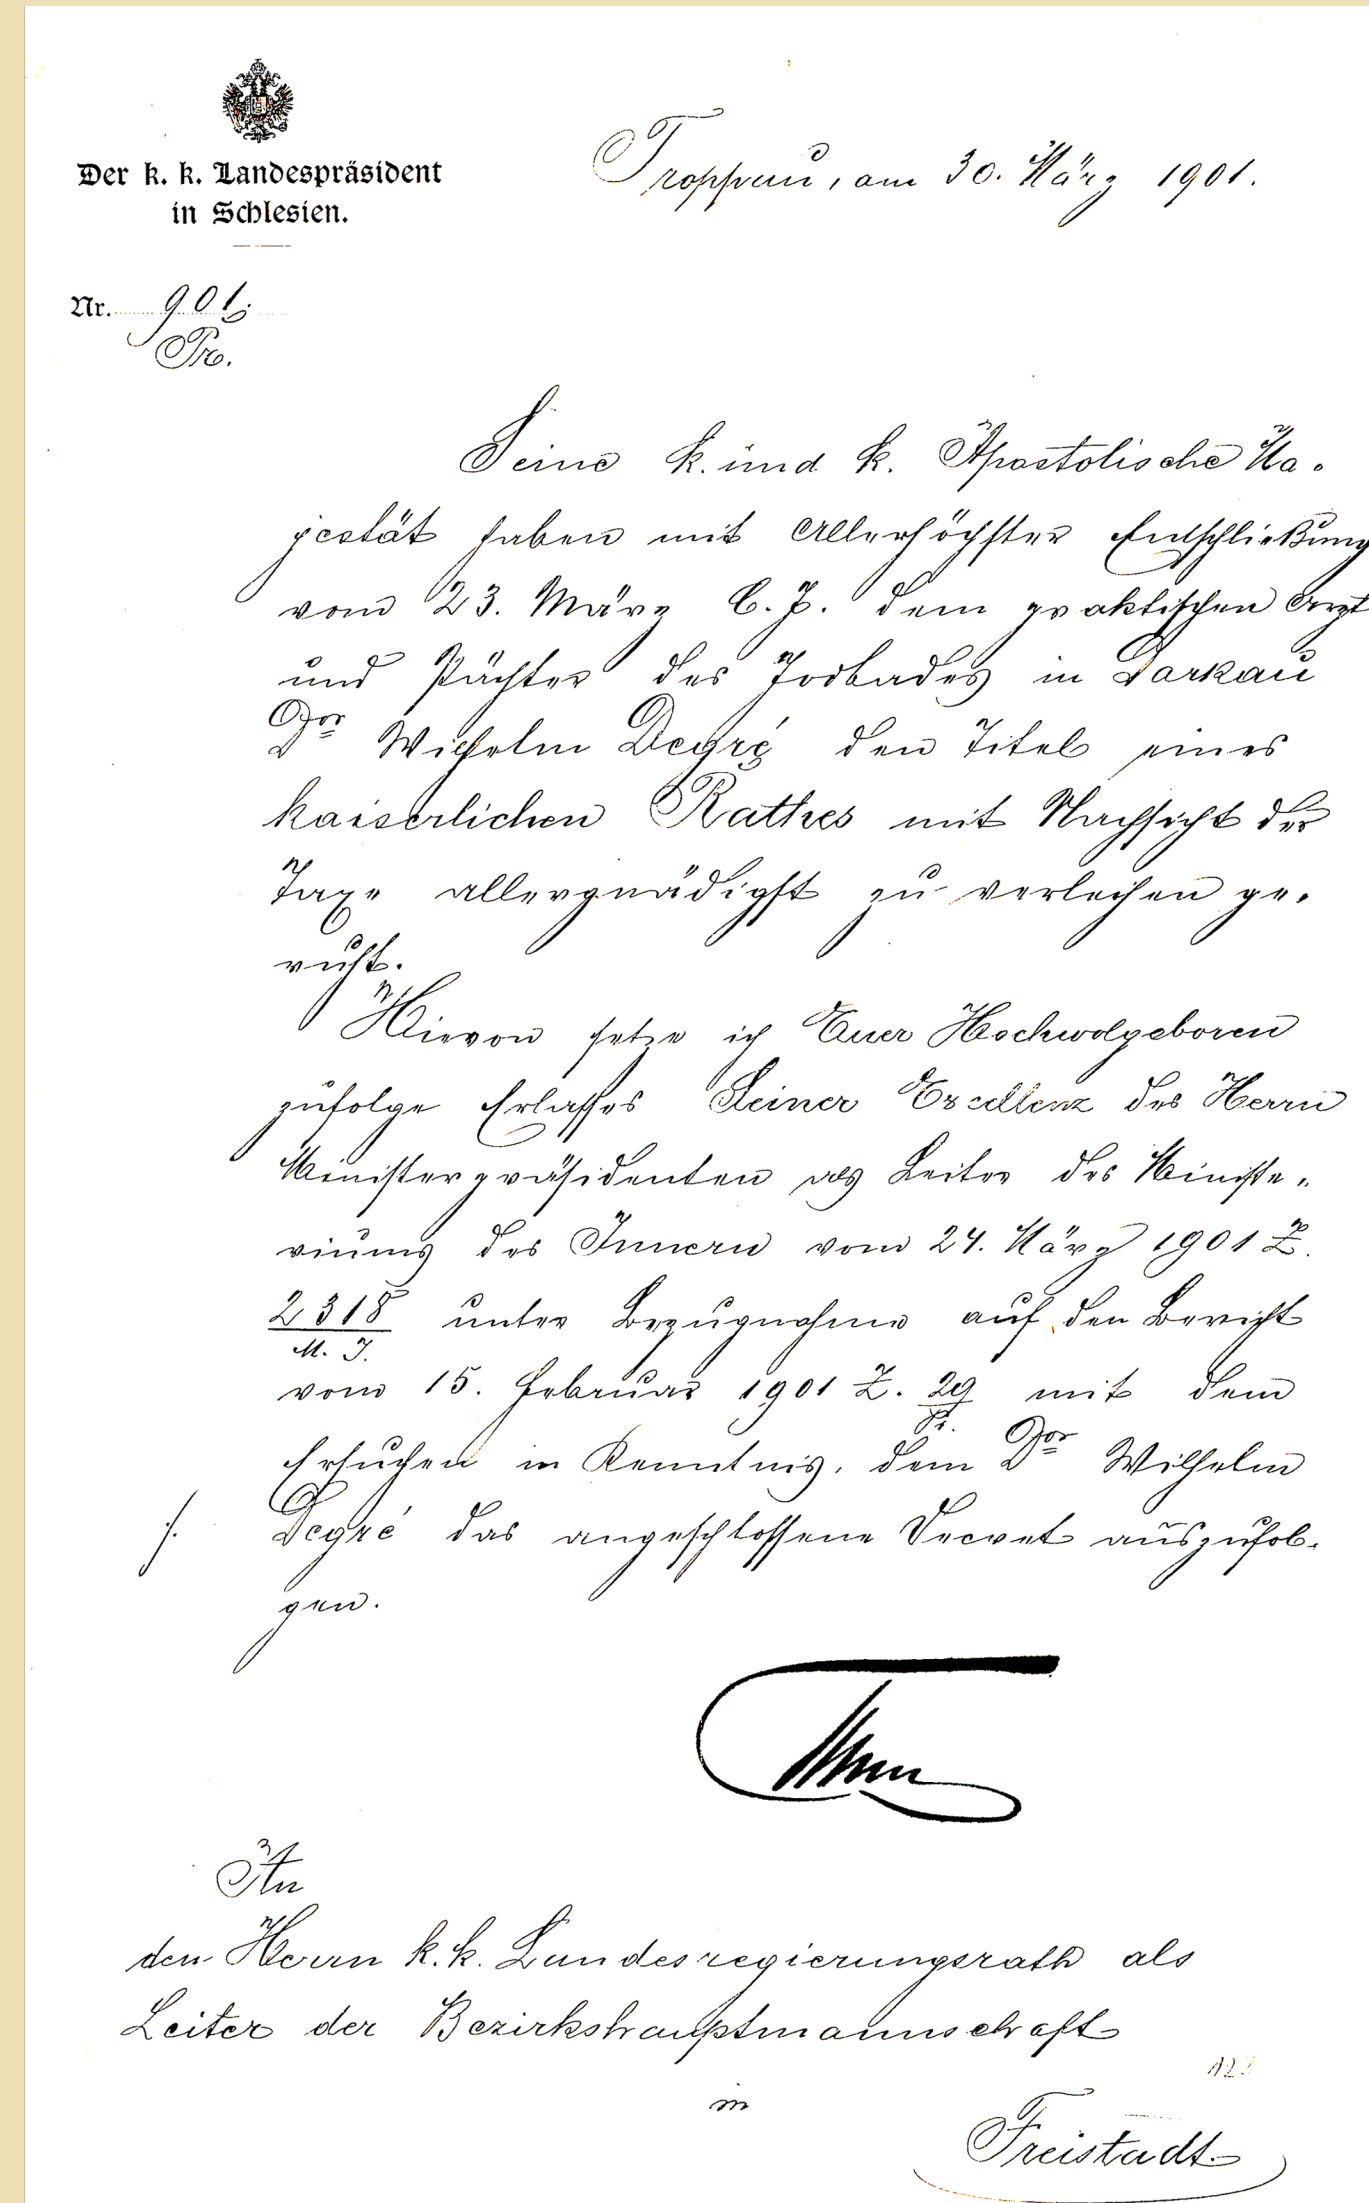 Der k. k. Landespräsident
in Schlesien.
Troppau, am 30. März 1901.
Nr. 901
Pr.
Seine k. und k. Apostolische Ma-
jestät haben mit Allerhöchster Entschließung
vom 23. März l. J. dem praktischen Arzt
und Pächter des Jodbades in Darkau
Dor Wilhelm Degré den Titel eines
kaiserlichen Rathes mit Nachsicht der
Taxe allergnädigst zu verleihen ge-
ruht.
Hievon setze ich Euer Hochwolgeboren
zufolge Erlasses Seiner Excellenz des Herrn
Ministerpräsidenten als Leiter des Ministe-
riums des Innern vom 24. März 1901 Z.
2318
M. I.
unter Bezugnahme auf den Bericht
vom 15. Februar 1901 Z. 29 mit dem
Pr.
Ersuchen in Kenntnis, dem Dor Wilhelm
./. Degré das angeschlossene Decret auszufol-
gen.
Thun
An
den Herrn k. k. Landesregierungsrath als
Leiter der Bezirkshauptmannschaft
in
Freistadt